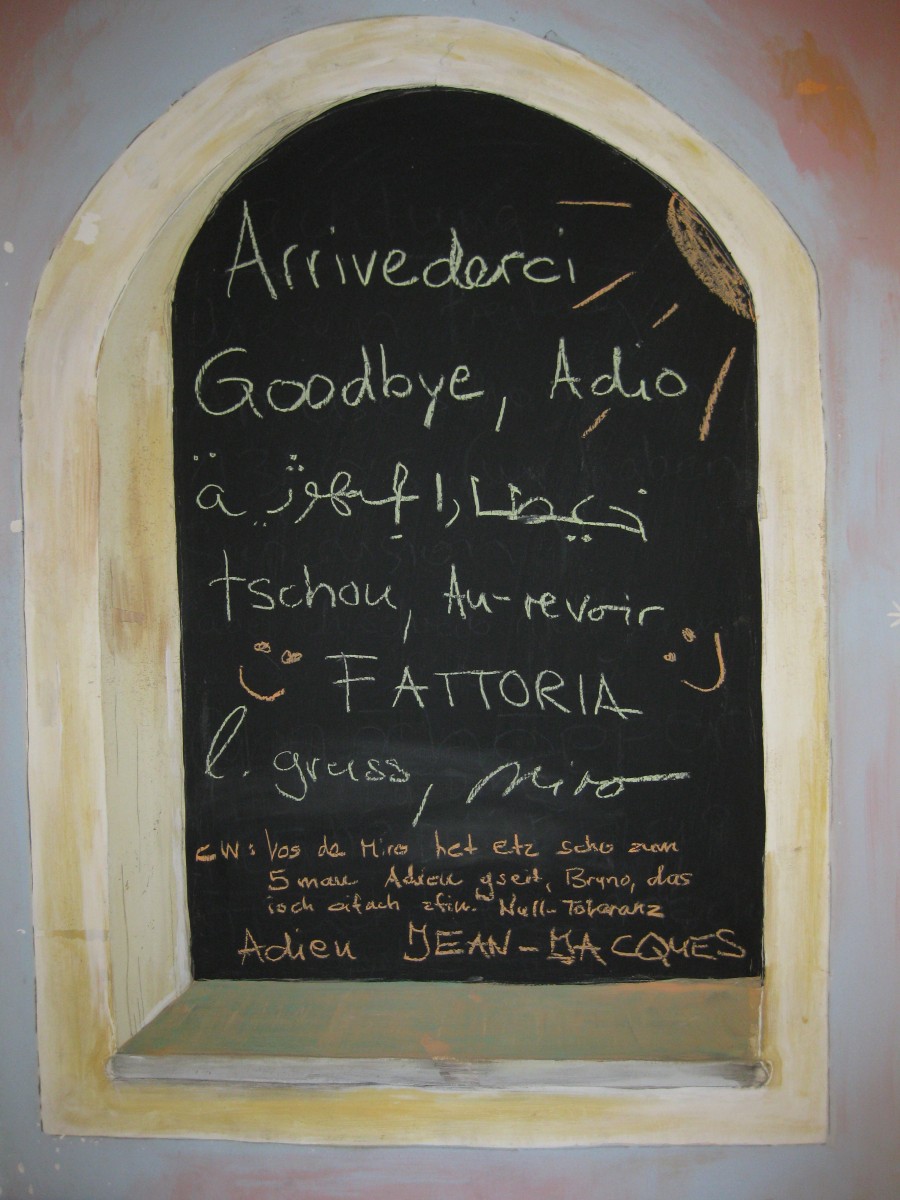 Arrivederci
Goodbye, Adio
tschou, Au-revoir
FATTORIA
l. gruss, Miro
Miro het etz scho zum
5 mau Adieu gseit, Bruno, das
isch eifach zfiu. Null-Toleranz
Adieu JEAN-JACQUES